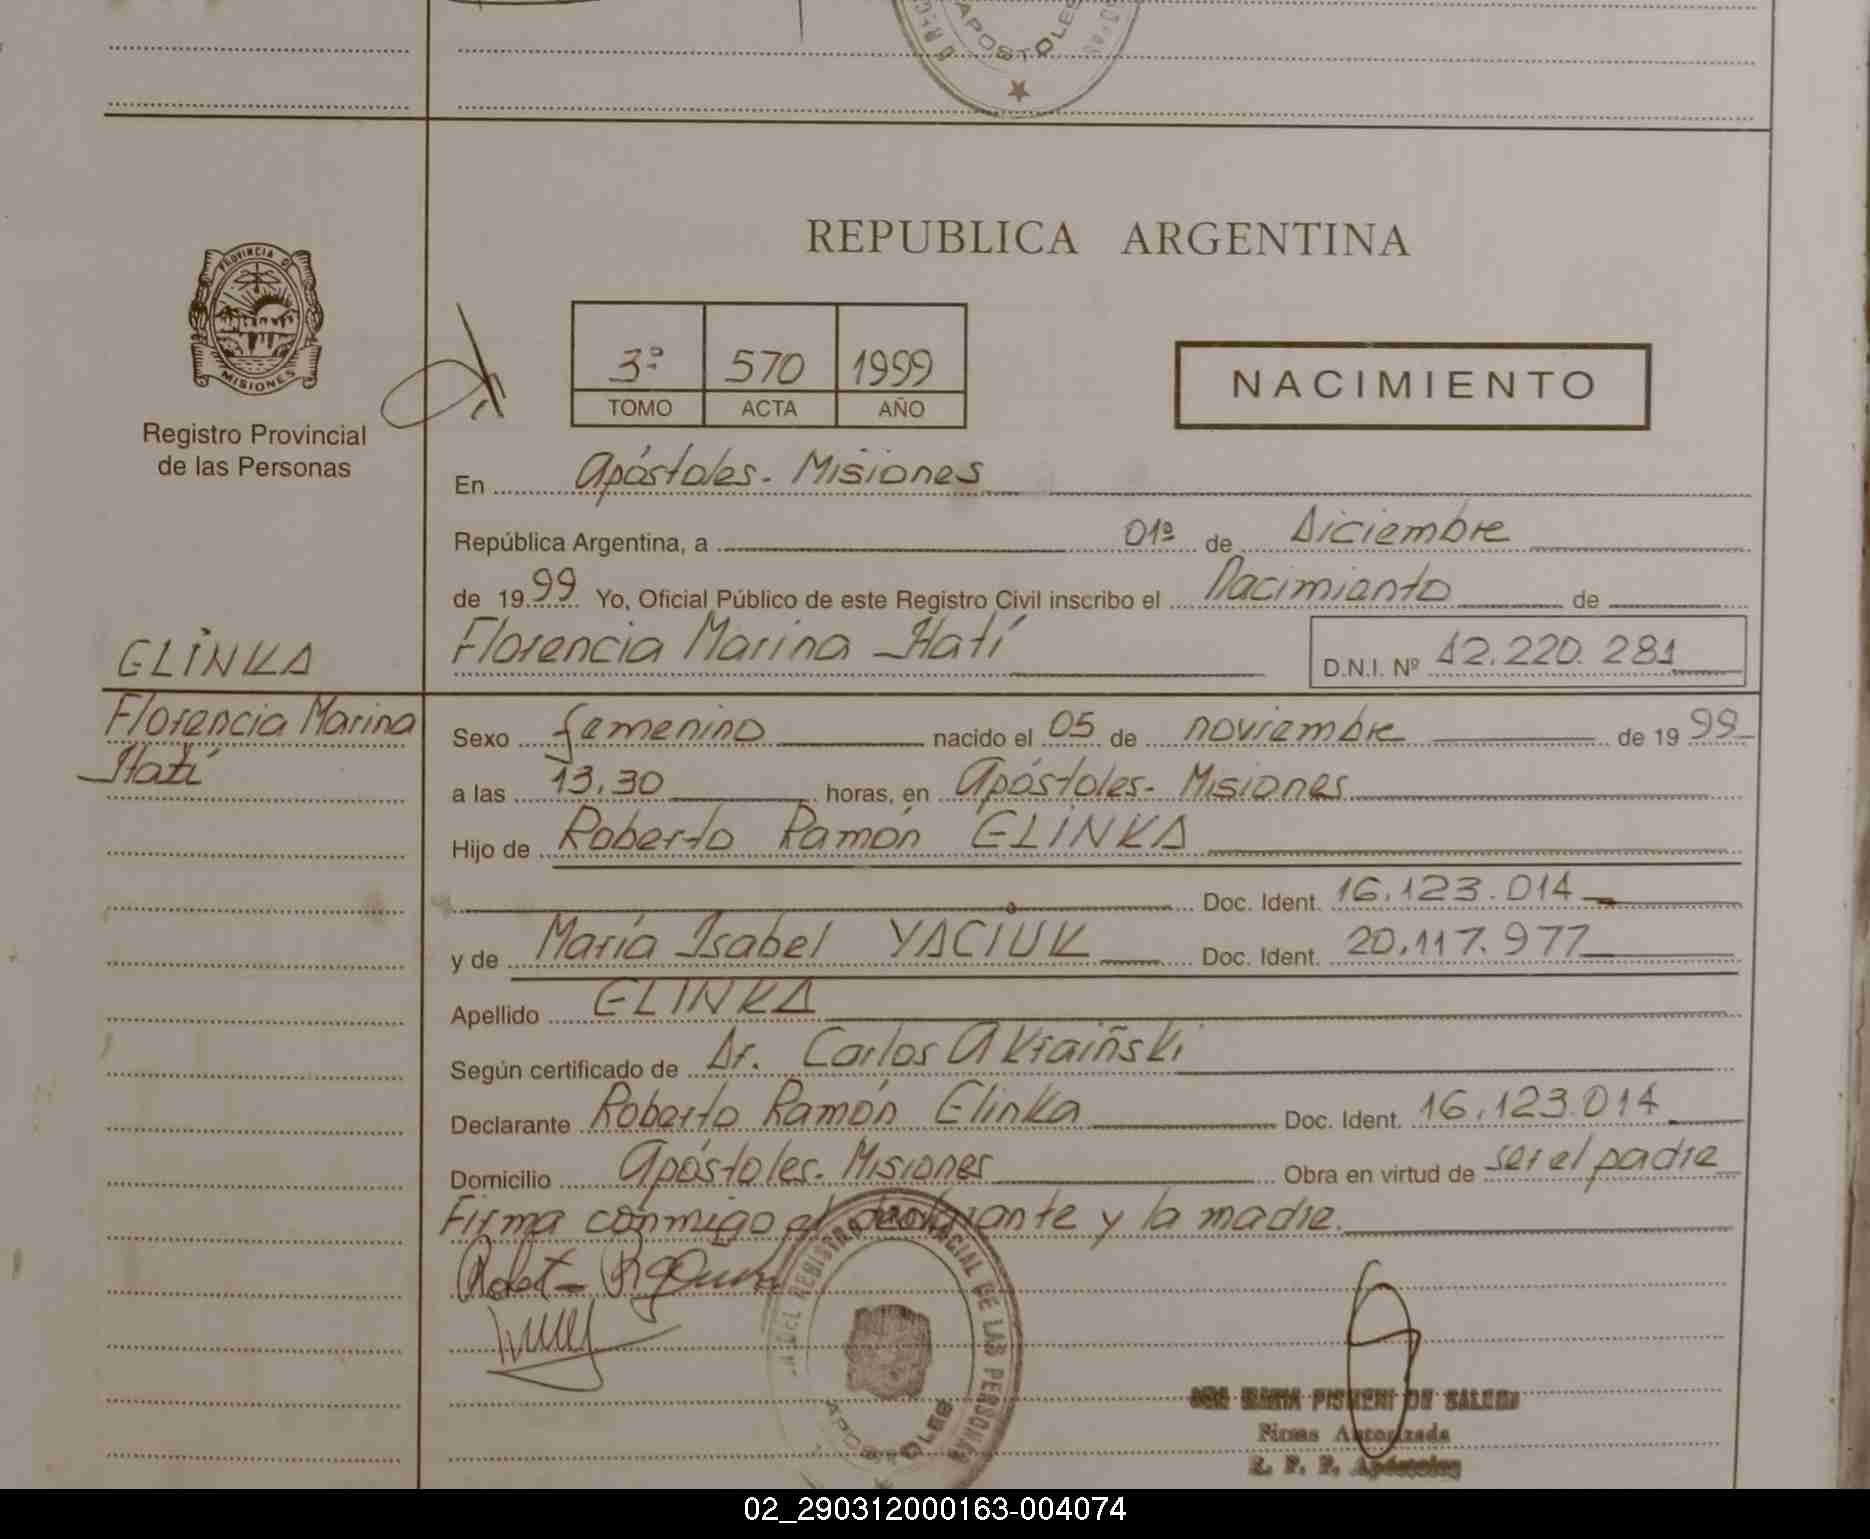 APOSTOLES
PROVINCIA DE
MISIONES
Registro Provincial
de las Personas
REPUBLICA ARGENTINA
3º 570 1999
TOMO ACTA AÑO
NACIMIENTO
En Apóstoles - Misiones
República Argentina, a 01º de Diciembre
de 1999 Yo, Oficial Público de este Registro Civil inscribo el Nacimiento de
GLINKA
Florencia Marina Itatí
D.N.I. Nº 42.220.281
Florencia Marina
Itatí
Sexo femenino nacido el 05 de noviembre de 1999
a las 13,30 horas, en Apóstoles - Misiones
Hijo de Roberto Ramón GLINKA
Doc. Ident. 16.123.014
y de María Isabel YACIUK Doc. Ident. 20.117.977
Apellido GLINKA
Según certificado de Dr. Carlos Akraiñski
Declarante Roberto Ramón Glinka Doc. Ident. 16.123.014
Domicilio Apóstoles - Misiones Obra en virtud de ser el padre
Firma conmigo el declarante y la madre.
REGISTRO PROVINCIAL DE LAS PERSONAS
APOSTOLES
MARIA DE
Firma Autorizada
R. P. P. Apóstoles
02_290312000163-004074